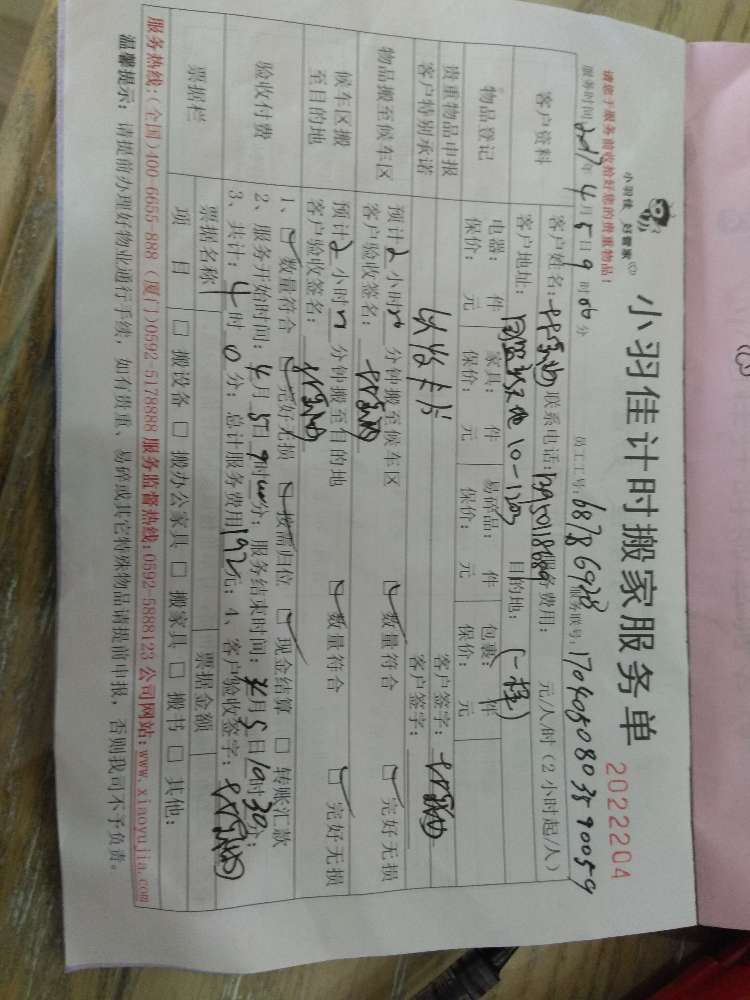 小羽佳 好管家
小羽佳计时搬家服务单
2022204
请您于服务前收拾好您的贵重物品！
服务时间：2017年4月5日9时00分 员工工号：6878 6928 服务账号：
客户资料 客户姓名： 联系电话： 服务费用： 元/人/时（2小时起/人）
客户地址： 10-1203 目的地：（一楼）
物品登记 电器： 件 家具： 件 易碎品： 件 包裹： 件
保价： 元 保价： 元 保价： 元 保价： 元 客户签字：
贵重物品申报
客户特别承诺 客户签字：
物品搬至候车区 预计2小时 分钟搬至候车区 数量符合 完好无损
客户验收签名：
候车区搬至目的地 预计2小时 分钟搬至目的地 数量符合 完好无损
客户验收签名：
验收付费 1、 数量符合 完好无损 按需归位 现金结算 转账汇款
2、服务开始时间：4月5日9时00分；服务结束时间：4月5日10时30分；
3、共计：4时0分；总计服务费用192元；4、客户验收签字：
票据栏 票据名称 票据金额
项目 搬设备 搬办公家具 搬家具 搬书 其他：
服务热线：（全国）400-6655-888 （厦门）0592-5178888 服务监督热线：0592-5888123 公司网站：www.xiaoyujia.com
温馨提示：请提前办理好物业通行手续，如有贵重、易碎或其它特殊物品请提前申报，否则我司不予负责。